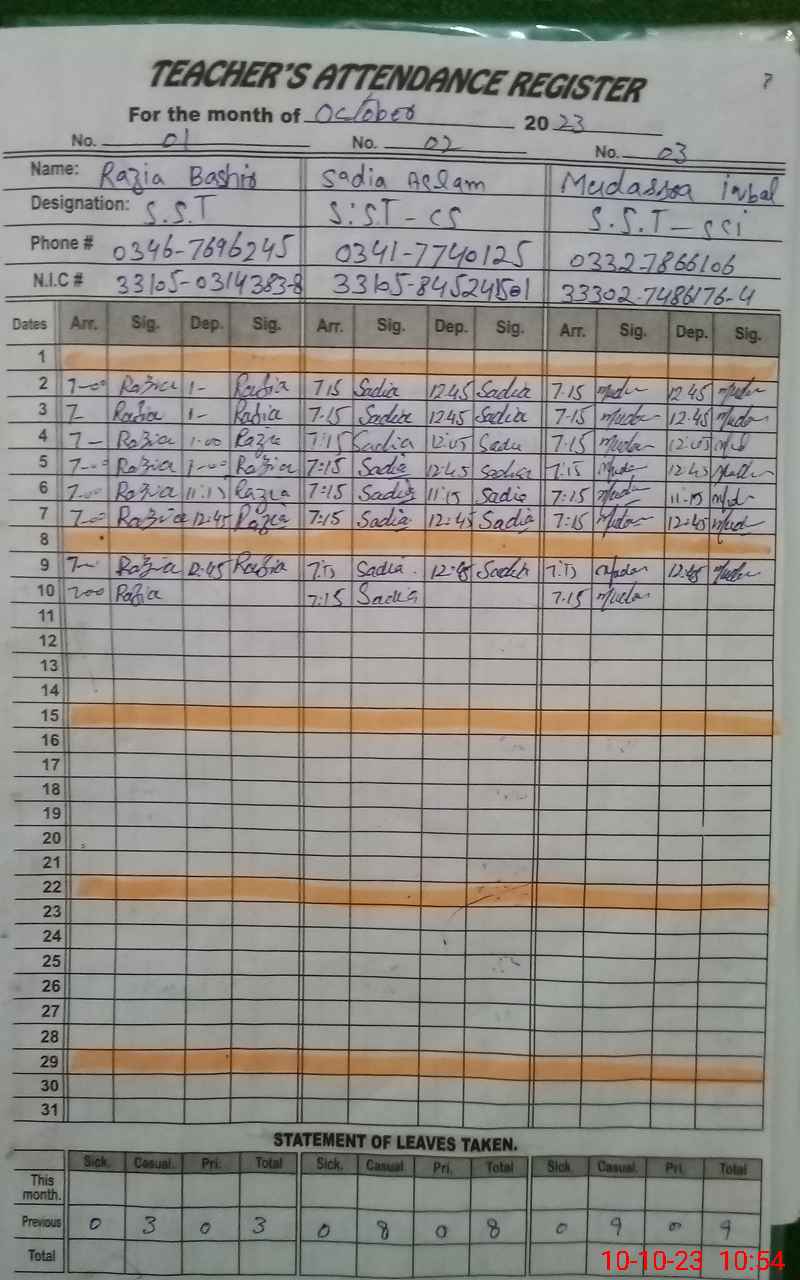 7
TEACHER'S ATTENDANCE REGISTER
For the month of October 2023
No. 01 No. 02 No. 03
Name: Razia Bashir Sadia Aslam Mudassra iqbal
Designation: S.S.T S.S.T - CS S.S.T - SCI
Phone # 0346-7696245 0341-7740125 0332-7866106
N.I.C # 33105-0314383-8 33105-8452415 33302-7486176-4
Dates Arr. Sig. Dep. Sig. Arr. Sig. Dep. Sig. Arr. Sig. Dep. Sig.
1
2 7-00 Razia 1- Razia 7:15 Sadia 12:45 Sadia 7:15 12:45
3 7- Razia 1- Razia 7:15 Sadia 12:45 Sadia 7:15 12:45
4 7- Razia 1-00 Razia 7:15 Sadia 12:05 Sadia 7:15 12:05
5 7-00 Razia 1-00 Razia 7:15 Sadia 12:45 Sadia 7:15 12:45
6 7-00 Razia 11:15 Razia 7:15 Sadia 11:15 Sadia 7:15 11:15
7 7-0 Razia 12:45 Razia 7:15 Sadia 12:45 Sadia 7:15 12:45
8
9 7- Razia 12:45 Razia 7:15 Sadia 12:45 Sadia 7:15 12:45
10 7-00 Razia 7:15 Sadia 7:15
11
12
13
14
15
16
17
18
19
20
21
22
23
24
25
26
27
28
29
30
31
STATEMENT OF LEAVES TAKEN.
Sick. Casual. Pri. Total Sick. Casual Pri. Total Sick Casual. Pri. Total
This month.
Previous 0 3 0 3 0 8 0 8 0 9 0 9
Total
10-10-23 10:54